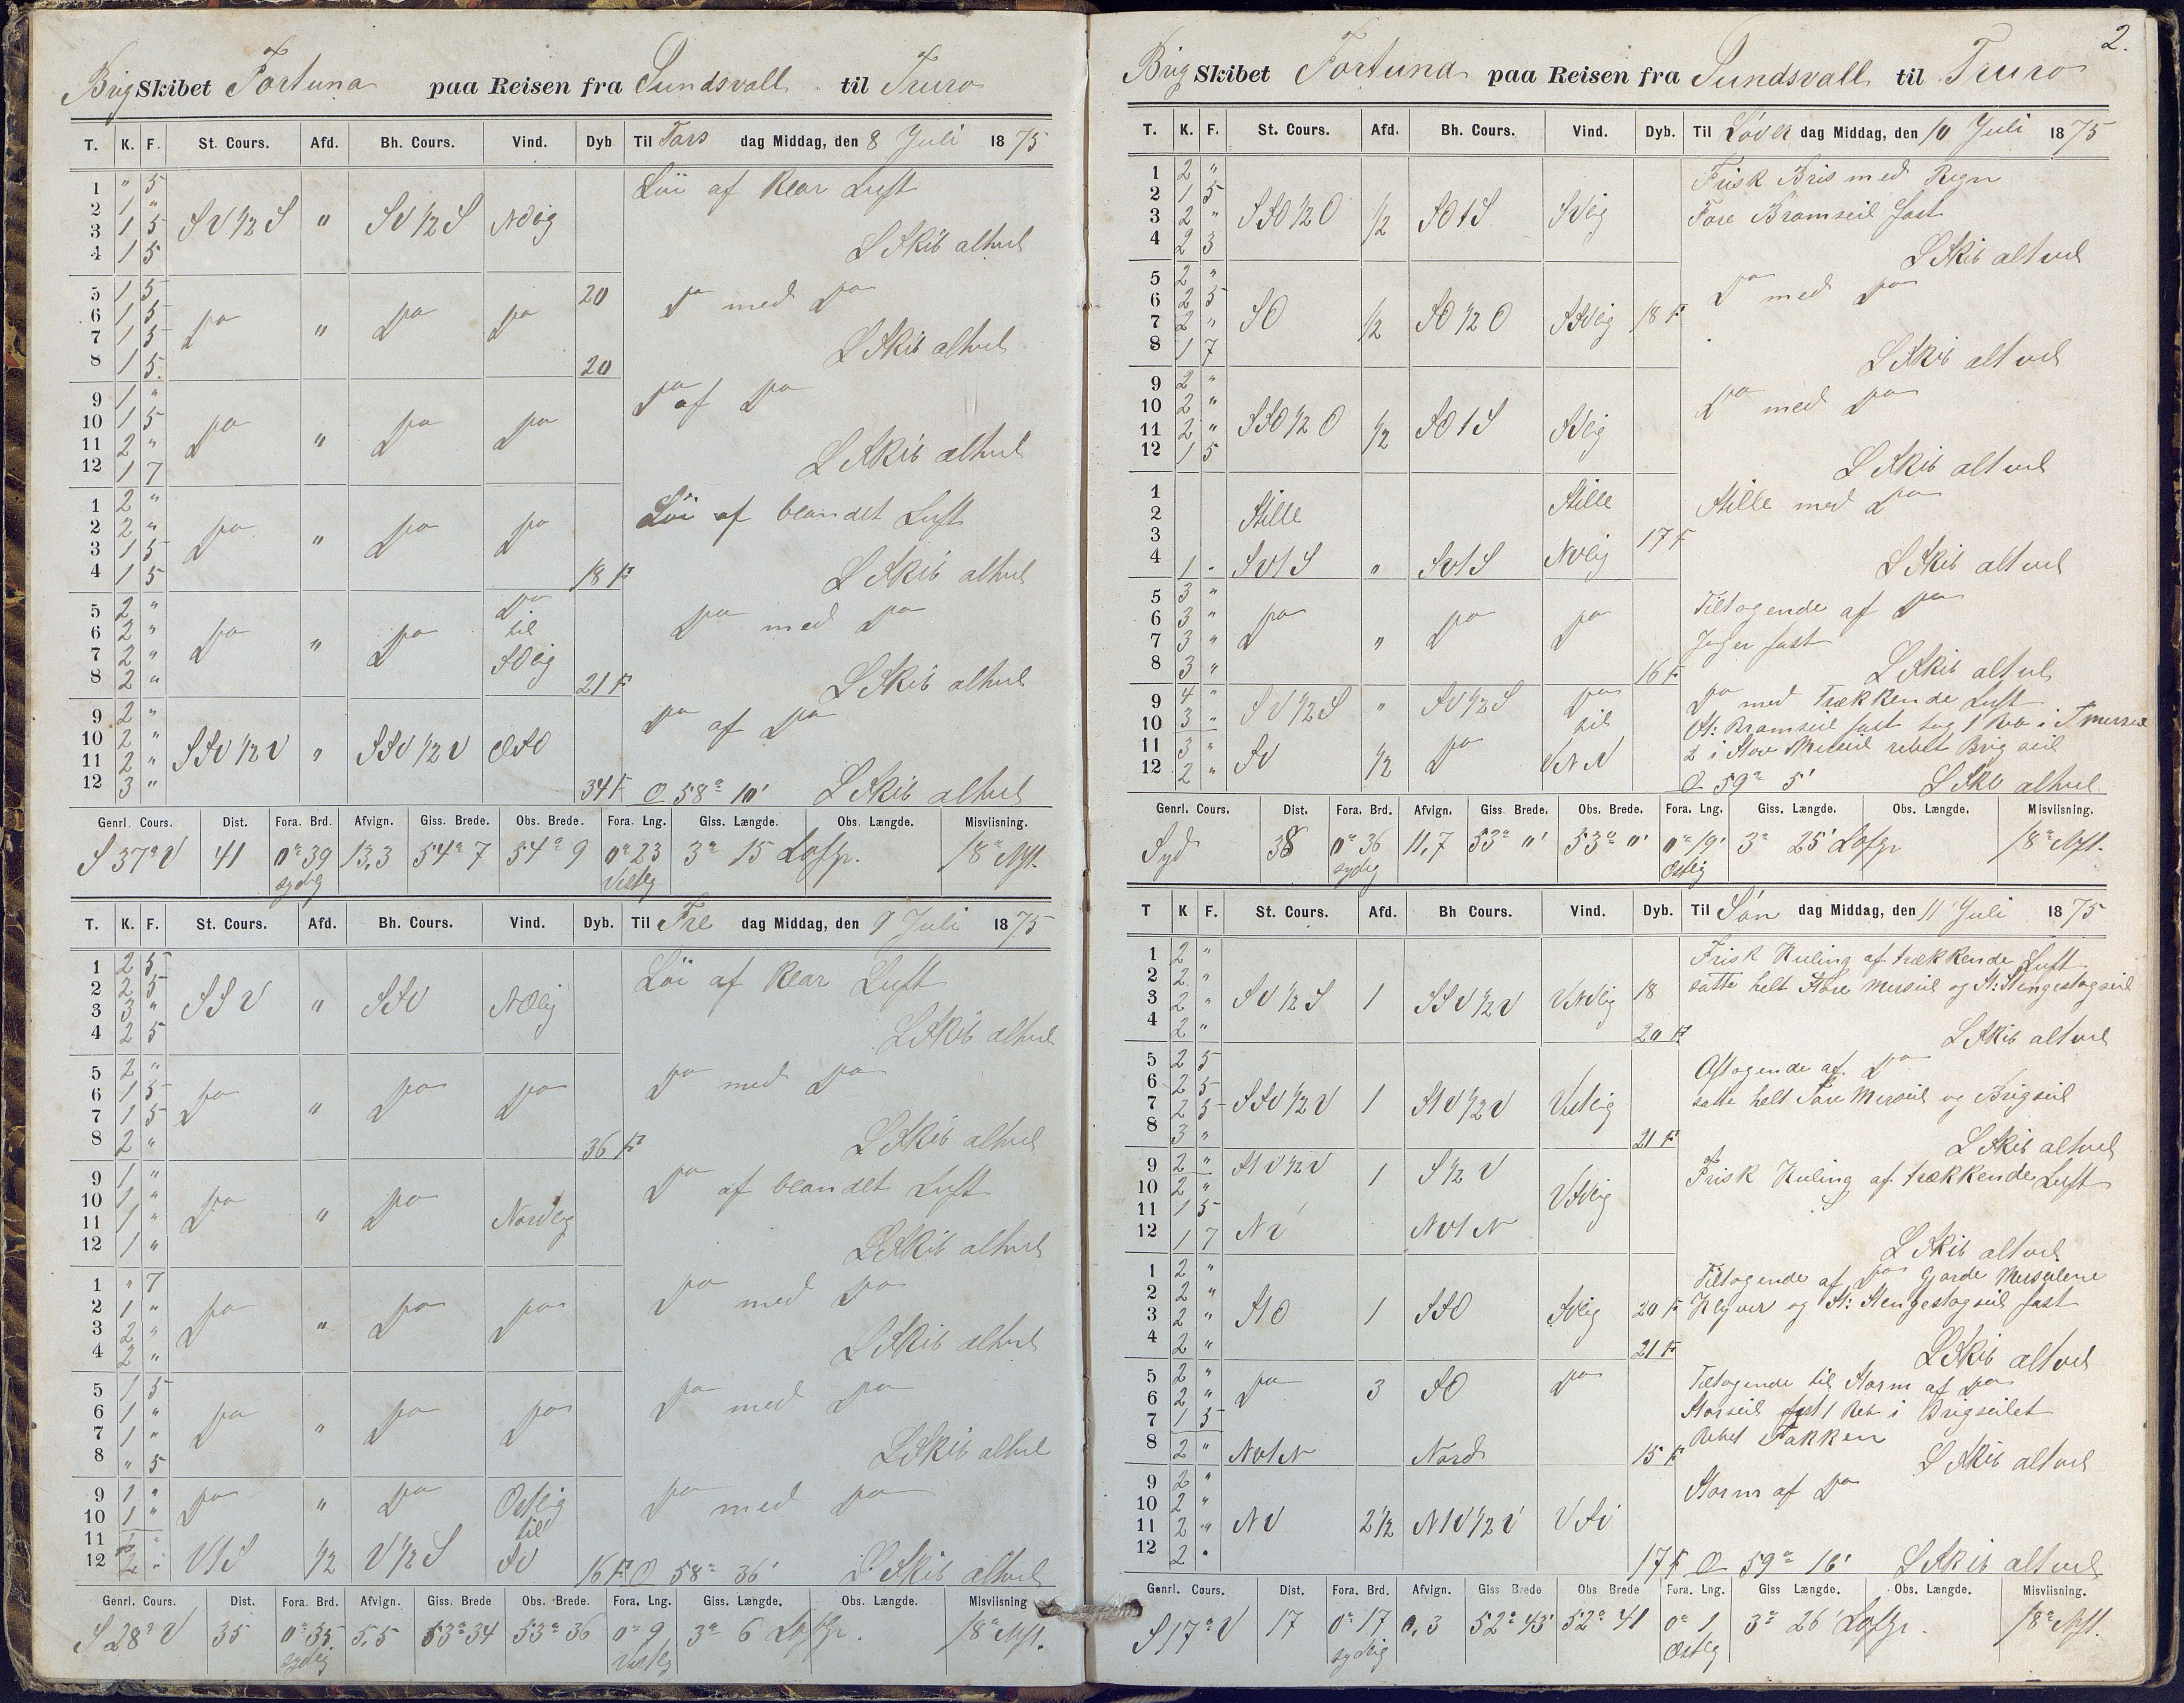 Brig Skibet Fortuna paa Reisen fra Sundsvall til Truro
T. K. F. St. Cours. Afd. Bh. Cours. Vind. Dyb Til Tors dag Middag, den 8 Juli 1875
1 " 5 Löi af klar Luft
2 1 " SV 1/2 S " SV 1/2 S NOlig
3 1 5
4 1 5 L Skib altvel
5 1 5 20 Do med Do
6 1 5 Do " Do Do
7 1 5
8 1 5. 20 L Skib altvel
9 1 " Do af Do
10 1 5 Do " Do Do
11 2 "
12 1 7 L Skib altvel
1 2 " Löi af blandet Luft
2 2 " Do " Do Do
3 1 5
4 1 5 18 F L Skib altvel
5 2 " Do Do med Do
6 2 " Do " Do til
7 2 " SOlig
8 2 " 21 F L Skib altvel
9 2 " Do af Do
10 2 " SSV 1/2 V " SSV 1/2 V OSO
11 2 "
12 3 " 34 F O 58° 10' L Skib altvel
Genrl. Cours. Dist. Fora. Brd. Afvign. Giss. Brede. Obs. Brede. Fora. Lng. Giss. Længde. Obs. Længde. Misviisning.
S 37° V 41 0° 39 sydlig 13,3 54° 7 54° 9 0° 23 Vestlg 3° 15 Lofgr. 18° NVt.
T. K. F. St. Cours. Afd. Bh. Cours. Vind. Dyb. Til Fre dag Middag, den 9 Juli 1875
1 2 5 Löi af klar Luft
2 2 5 SSV " SSV NOlig
3 3 "
4 2 5 L Skib altvel
5 2 " Do med Do
6 1 5 Do " Do Do
7 1 5
8 2 " 36 F L Skib altvel
9 1 " Do af blandet Luft
10 1 " Do " Do Nordlig
11 1 "
12 1 " L Skib altvel
1 " 7 Do med Do
2 1 " Do " Do Do
3 2 "
4 2 " L Skib altvel
5 1 5 Do med Do
6 1 " Do " Do Do
7 1 "
8 " 5 L Skib altvel
9 1 " Do " Do Ostlig Do med Do
10 1 " til
11 "
12 2 " V1S 1/2 V 1/2 S SV 16 F O 58° 36' L Skib altvel
Genrl. Cours. Dist. Fora. Brd. Afvign. Giss. Brede Obs. Brede. Fora. Lng. Giss. Længde. Obs. Længde. Misviisning
S 28° V 35 0° 35 sydlig 5,5 53° 34 53° 36 0° 9 Vestlg 3° 6 Lofgr. 18° NVt.
2.
Brig Skibet Fortuna paa Reisen fra Sundsvall til Truro
T. K. F. St. Cours. Afd. Bh. Cours. Vind. Dyb. Til Löver dag Middag, den 10 Juli 1875
1 2 " Frisk Bris med Regn
2 1 5 SSO 1/2 O 1/2 SO1S SVlig Fore Bramseil fast
3 2 "
4 2 3 L Skib altvel
5 2 " Do med Do
6 2 5 SO 1/2 SO 1/2 O SSVlig 18 F
7 2 "
8 1 7 L Skib altvel
9 2 " Do med Do
10 2 " SSO 1/2 O 1/2 SO1S SVlig
11 2 "
12 1 5 L Skib altvel
1 Stille Stille med Do
2 Stille
3 17 F
4 1 - SV1S " SV1S NVlig L Skib altvel
5 3 " Tiltagende af Do
6 3 " Do " Do Do
7 3 " Jager fast
8 3 " 16 F L Skib altvel
9 4 " SV 1/2 S " SV 1/2 S Do Do med Trækkende Luft
10 3 " til St: Bramseil fast tog 1 Reb i F merseil
11 3 " SV 1/2 Do VNV 2 i Store Merseil rebet Brigseil
12 2 " O 59° 5' L Skib altvel
Genrl. Cours. Dist. Fora. Brd. Afvign. Giss. Brede. Obs. Brede. Fora. Lng. Giss. Længde. Obs. Længde. Misviisning
Syd 38 0° 36 sydlig 11,7 53° "' 53° "' 0° 19' Østlig 3° 25' Lofgr 18° NVt.
T K F. St. Cours. Afd. Bh Cours. Vind. Dyb. Til Sön dag Middag, den 11 Juli 1875
1 2 " Frisk Kuling af trækkende Luft
2 2 " SV 1/2 S 1 SSV 1/2 V VNVlig 18 satte helt Store Merseil og St: Stengestagseil
3 2 "
4 2 " 20 F L Skib altvel
5 2 5 Aftagende af Do
6 2 5 SSV 1/2 V 1 S1V 1/2 V Vestlig satte helt Fore Merseil og Brigseil
7 2 5
8 3 " 21 F L Skib altvel
9 2 " S1V 1/2 V 1 S 1/2 V Frisk Kuling af trækkende Luft
10 2 " VSVlig
11 1 5
12 1 7 NV NV1N L Skib altvel
1 2 " Tiltagende af Do Gjorde Merseilene
2 2 " S1O 1 SSO SVlig 20 F Klyver og St: Stengestagseil fast
3 2 "
4 2 " 21 F L Skib altvel
5 2 " Do 3 SO Do Tiltagende til Storm af Do
6 2 " Storseil fast 1 Reb i Brigseilet
7 1 5 Rebet Fokken
8 2 " NV1N Nord 15 F L Skib altvel
9 2 " Storm af Do
10 2 "
11 2 " NV 2 1/2 N1V 1/2 V VSV
12 2 " 17 F O 59° 16' L Skib altvel
Genrl. Cours. Dist. Fora. Brd. Afvign. Giss Brede Obs Brede Fora. Lng. Giss Længde. Obs. Længde. Misviisning.
S 17° V 17 0° 17 sydlig 0,3 52° 43' 52° 41 0° 1 Østlg 3° 26' Lofgr. 18° NVt.